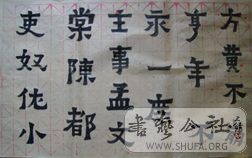 方黄不
年
一度
事孟文
棠陳都
吏奴佗小
書藝公社
WWW.SHUFA.ORG